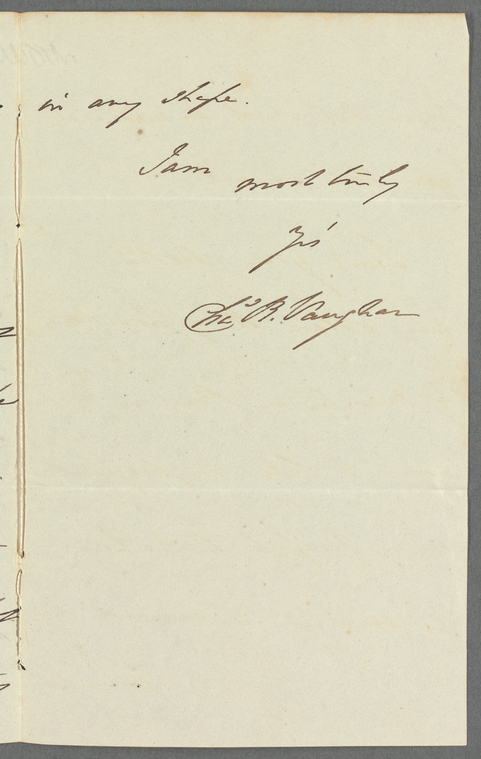 in any shape.
I am
most truly
Yrs
Chas R. Vaughan